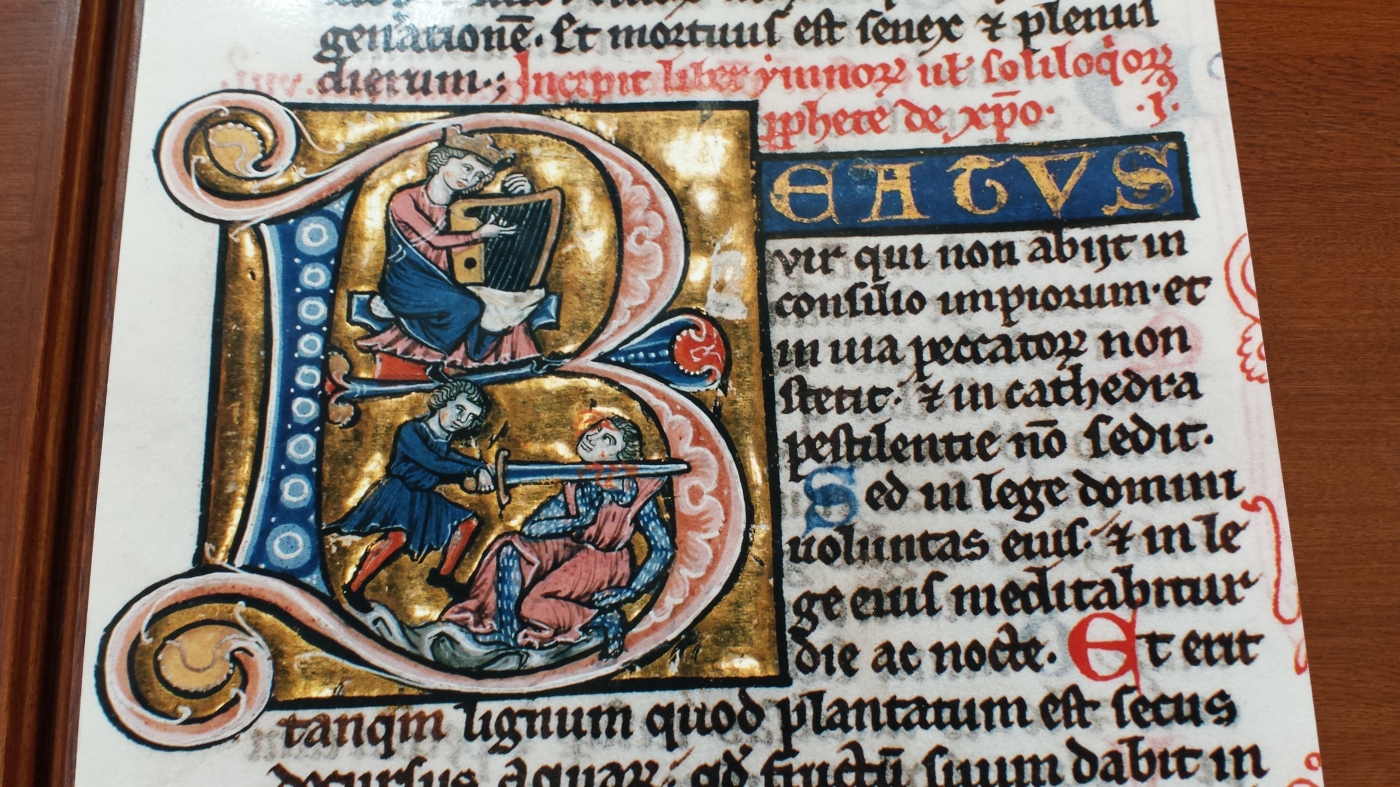 generationē. Et mortuus est senex ⁊ plenus
dierum.; Incipit liber ymnoꝝ ul̄ soliloq̇oꝝ
ꝓphete de xp̄o. .I.
BEATUS
vir qui non abijt in
consilio impiorum. et
in uia peccatoꝝ non
stetit. ⁊ in cathedra
pestilentie nō sedit.
Sed in lege domini
uoluntas eius. ⁊ in le
ge eius meditabitur
die ac nocte. Et erit
tanqm lignum quod plantatum est secus
decursus aquaꝝ. qđ fructū suum dabit in